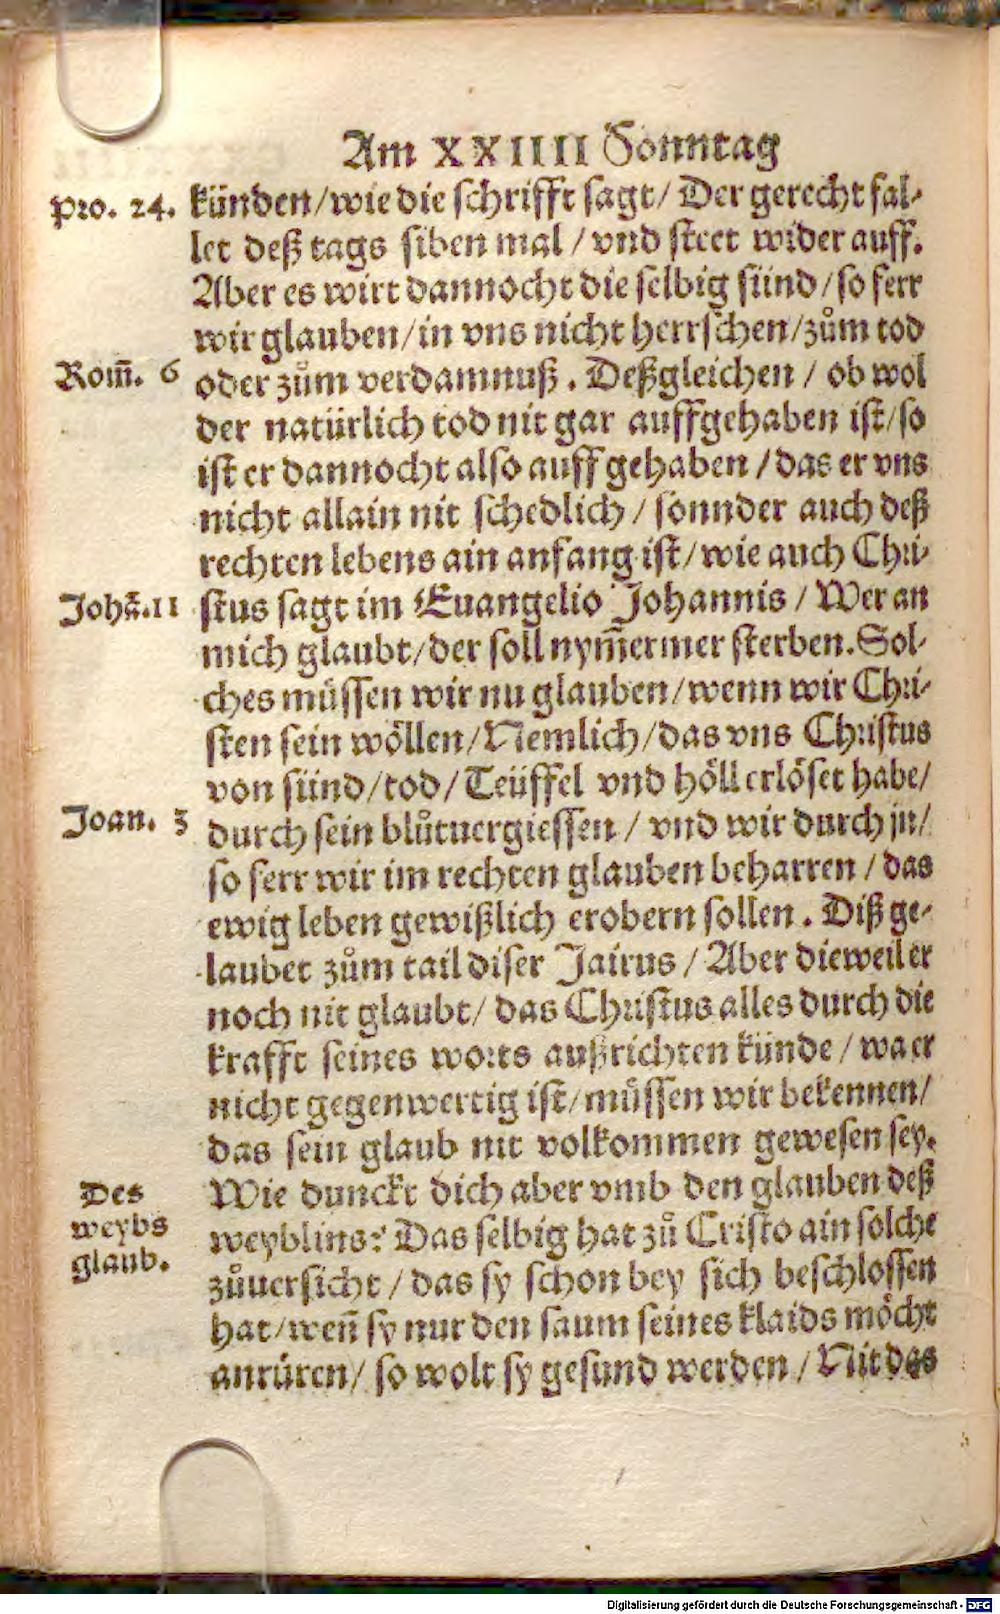 Am XXIIII Sonntag
Pro. 24. künden/wie die schrifft sagt/ Der gerecht fal-
let deß tags siben mal / vnd steet wider auff.
Aber es wirt dannocht die selbig sünd/so ferr
wir glauben/in vns nicht herrschen/zům tod
Rom̃. 6 oder zům verdamnuß. Deßgleichen / ob wol
der natürlich tod nit gar auffgehaben ist/so
ist er dannocht also auffgehaben/das er vns
nicht allain nit schedlich / sonnder auch deß
rechten lebens ain anfang ist/wie auch Chri-
Johã.11 stus sagt im Euangelio Johannis / Wer an
mich glaubt/der soll nym̃ermer sterben.Sol-
ches müssen wir nu glauben/wenn wir Chri-
sten sein wöllen/Nemlich/das vns Christus
von sünd/tod/Teüffel vnd höll erlöset habe/
Joan. 3 durch sein blůtuergiessen / vnd wir durch jn/
so ferr wir im rechten glauben beharren / das
ewig leben gewißlich erobern sollen. Diß ge-
laubet zům tail diser Jairus / Aber dieweil er
noch nit glaubt/ das Christus alles durch die
krafft seines worts außrichten künde / wa er
nicht gegenwertig ist/müssen wir bekennen/
das sein glaub nit volkommen gewesen sey.
Des Wie dunckt dich aber vmb den glauben deß
weybs weyblins? Das selbig hat zů Cristo ain solche
glaub. zůuersicht / das sy schon bey sich beschlossen
hat/wen̄ sy nur den saum seines klaids möcht
anrüren/ so wolt sy gesund werden / Nit das
Digitalisierung gefördert durch die Deutsche Forschungsgemeinschaft - DFG